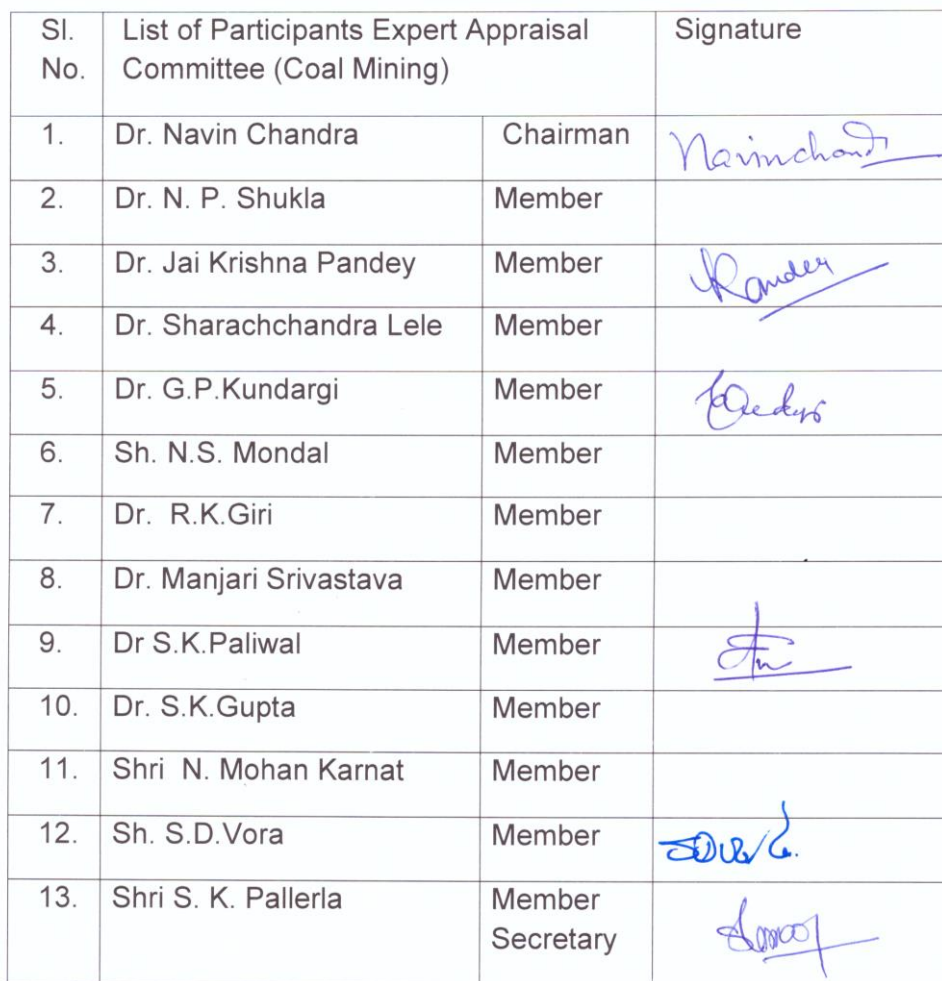 Sl. No. List of Participants Expert Appraisal Committee (Coal Mining) Signature
1. Dr. Navin Chandra Chairman Navinchand
2. Dr. N. P. Shukla Member
3. Dr. Jai Krishna Pandey Member
4. Dr. Sharachchandra Lele Member
5. Dr. G.P.Kundargi Member
6. Sh. N.S. Mondal Member
7. Dr. R.K.Giri Member
8. Dr. Manjari Srivastava Member
9. Dr S.K.Paliwal Member
10. Dr. S.K.Gupta Member
11. Shri N. Mohan Karnat Member
12. Sh. S.D.Vora Member
13. Shri S. K. Pallerla Member Secretary